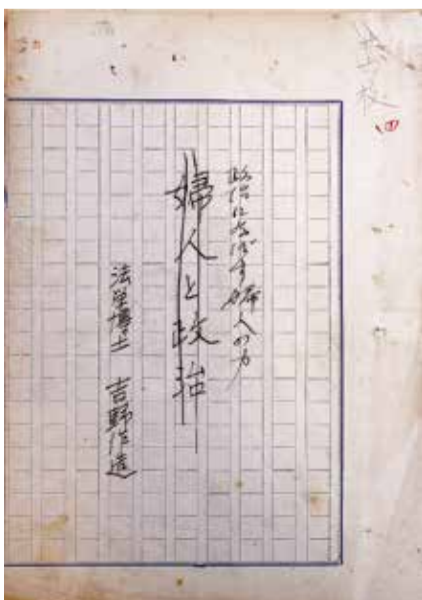 政治に及ぼす婦人の力
婦人と政治
法学博士 吉野作造